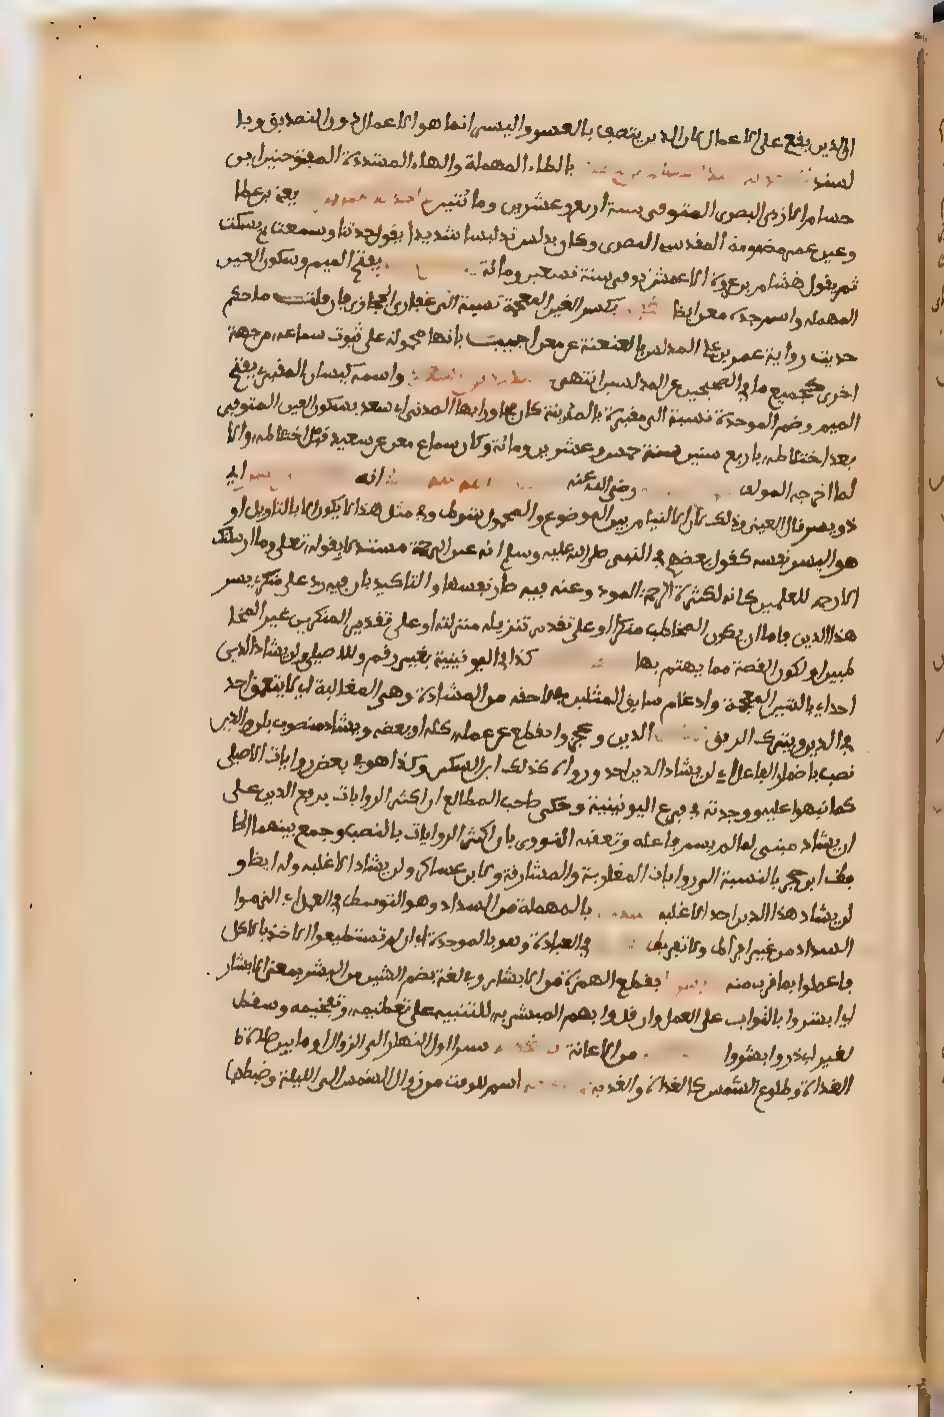 ان الدين يقع على الاعمال لان الدين يتصف بالعسر واليسر انما هو الاعمال دون التصديق وبا
لسند بالطاء المهملة والهاء المشددة المفتوحتين ابن
حسام الازدي البصري المتوفى سنة اربع وعشرين ومائتين يعني بن عطا
وعين عمر مضمومة المقدمي البصري وكان يدلس تدليسا شديدا يقول حدثنا وسمعت ثم يسكت
ثم يقول هشام بن عروة الاعمش توفي سنة تسعين ومائة بفتح الميم وسكون العين
المهملة واسم جده معن ايضا بكسر الغين المعجمة نسبة الى غفار الحجازي فان قلت ما حكم
حديث رواية عمر بن علي المدلس بالعنعنة عن معن اجيب بانها محمولة على ثبوت سماعه من جهة
اخرى كجميع ما في الصحيحين عن المدلسين انتهى واسمه كيسان المقبري بفتح
الميم وضم الموحدة نسبة الى مقبرة بالمدينة كان مجاورا بها المدني ابي سعد بسكون العين المتوفى
بعد اختلاطه باربع سنين سنة خمس وعشرين ومائة وكان سماع معن عن سعيد قبل اختلاطه والا
لما اخرجه المولف رضي الله عنه انه اي
ذو يسر قال العيني وذلك لان الالتيام بين الموضوع والمحمول شرط وفي مثل هذا لا يكون الا بالتاويل او
هو اليسر نفسه كقول بعضهم في النبي صلى الله عليه وسلم انه عين الرحمة مستدلا بقوله تعالى وما ارسلنك
الا رحمة للعلمين كانه لكثرة الرحمة المودوعة فيه صار نفسها والتاكيد بان فيه رد على منكر يسر
هذا الدين فاما ان يكون المخاطب منكرا او على تقدير تنزيله منزلته او على تقدير المنكرين غير المخا
طبين او لكون القصة مما يهتم بها كذا في اليونينية بغير رقم وللاصيلي ولن يشاد الدين
احد اي بالشين المعجمة وادغام سابق المثلين في لاحقه من المشادة وهي المغالبة اي لا يتعمق احد
في الدين ويترك الرفق الدين وعجز وانقطع عن عمله كله او بعضه ويشاد منصوب بلن والدين
نصب باضمار الفاعل اي لن يشاد الدين احد ورواه كذلك ابن السكن وكذا هو في بعض روايات الاصيلي
كما نبهوا عليه ووجدته في فرع اليونينية وحكى صاحب المطالع ان اكثر الروايات برفع الدين على
ان يشاد مبني لما لم يسم فاعله وتعقبه النووي بان اكثر الروايات بالنصب وجمع بينهما الحا
فظ ابن حجر بالنسبة الى روايات المغاربة والمشارقة ولابن عساكر ولن يشاد الا غلبه وله ايضا و
لن يشاد هذا الدين احد الا غلبه بالمهملة من السداد وهو التوسط في العمل اي الزموا
السداد من غير افراط ولا تفريط في العبادة وهو بالموحدة اي ان لم تستطيعوا الاخذ بالاكمل
فاعملوا بما قرب منه بقطع الهمزة من الابشار وفي لغة بضم الشين من البشر بمعنى الابشار
اي ابشروا بالثواب على العمل وان قل وابهم المبشر به للتنبيه على تعظيمه وتفخيمه وسقط
لغير ابي ذر وابشروا من الاعانة سير اول النهار الى الزوال او ما بين صلاة
الغداة وطلوع الشمس كالغداة والغدية اسم للوقت من زوال الشمس الى الليلة وضبطها